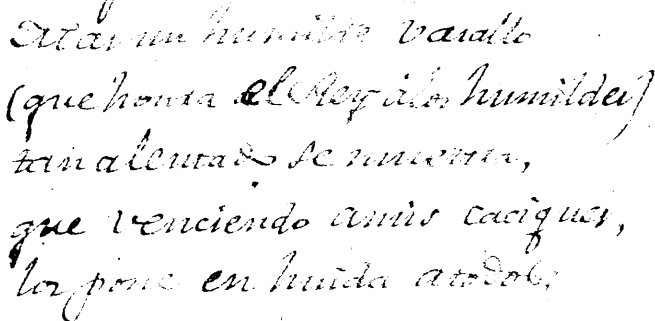 Mas un humilde Vasallo
(que honra el Rey á los humildes)
tan alentado se muestra,
que venciendo a mis caciques,
los pone en huida a todos;